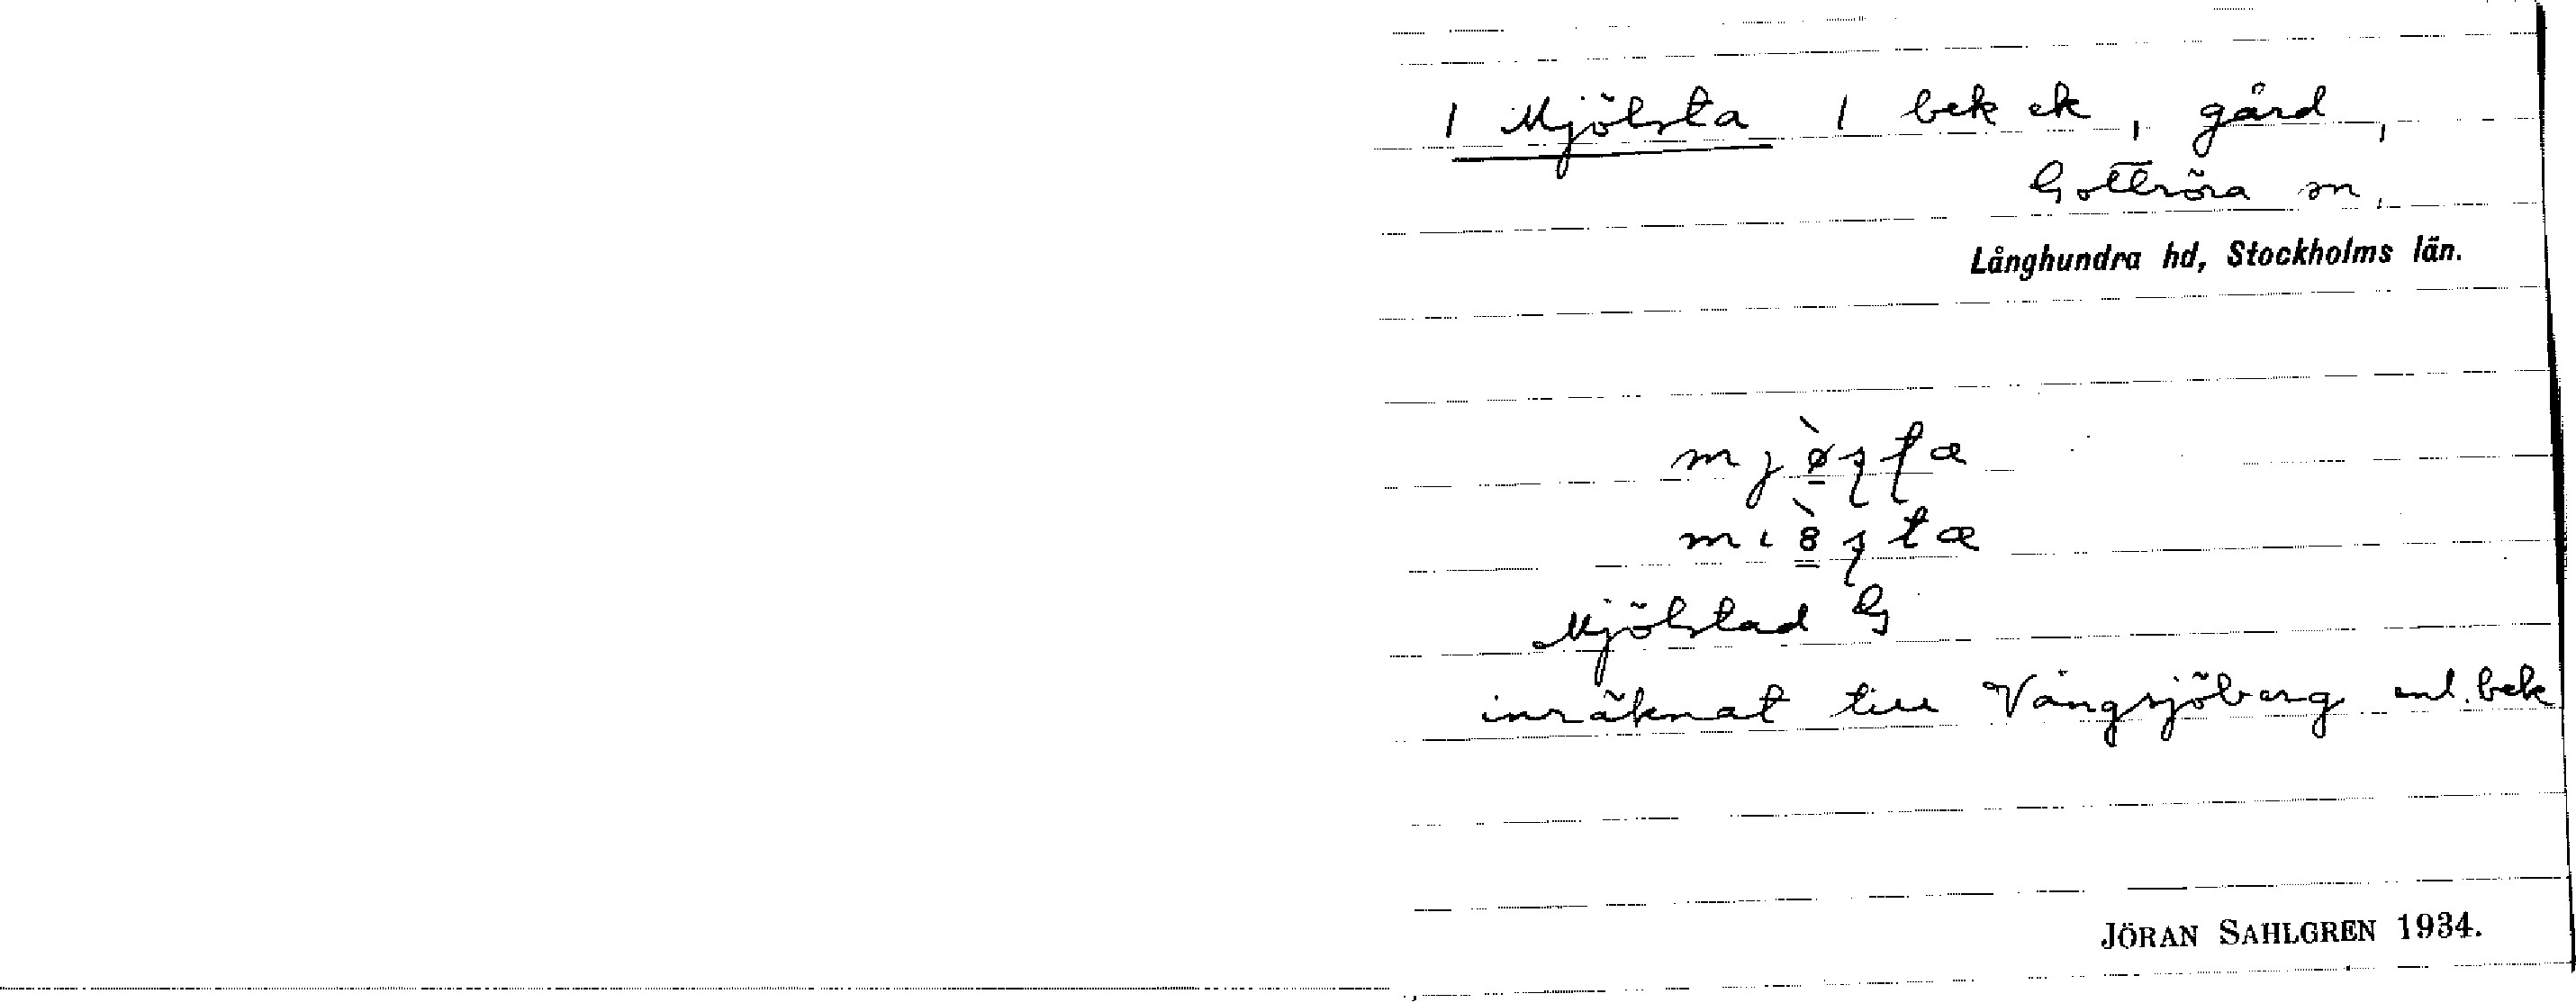 1 Mjölsta 1 bek ek, gård,
Gottröra sn,
Långhundra hd, Stockholms län.
Mjölstad G
inräknat till Vängsjöberg enl. bek
JÖRAN SAHLGREN 1934.